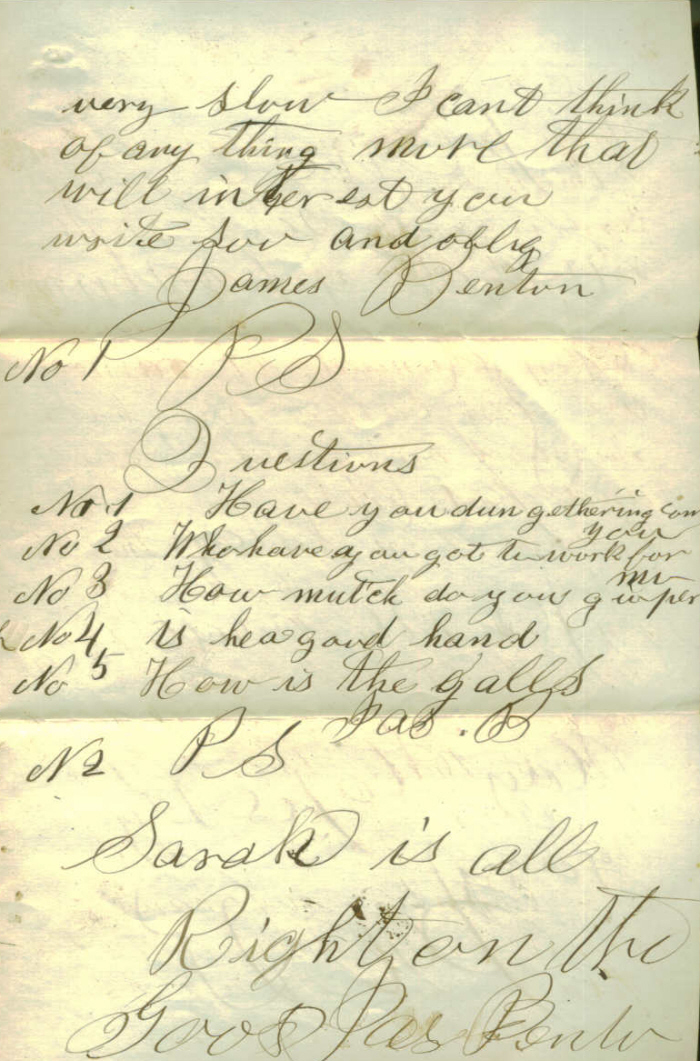 very slow I cant think
of any thing more that
will interest you
write soo and oblig
James Benton
No 1 PS
Questions
No 1 Have you dun gethering corn
No 2 Who have you got to work for you
No 3 How mutch do you giv per mo
No 4 is he a good hand
No 5 How is the galls
Jas. B
No 2 PS
Sarah is all
Right on the
Goos Jas Bento